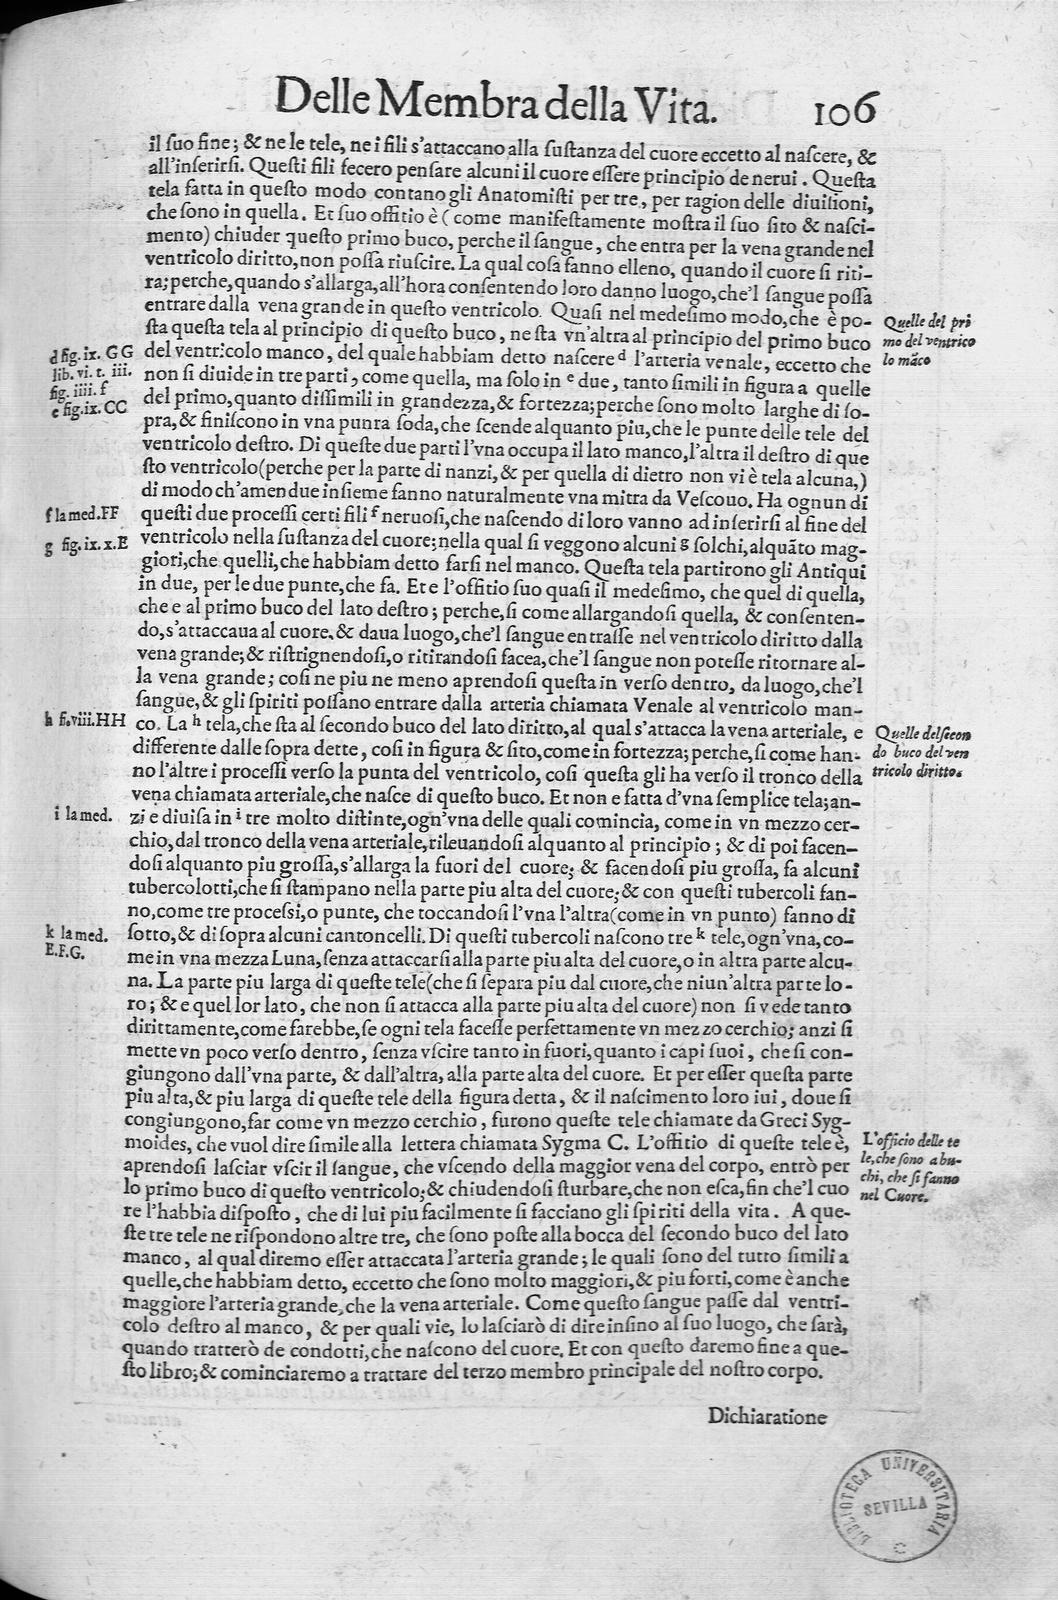 Delle Membra della Vita. 106
il ſuo fine; & ne le tele, ne i fili s'attaccano alla ſuſtanza del cuore eccetto al naſcere, &
all'inſerirſi. Queſti fili fecero penſare alcuni il cuore eſſere principio de nerui. Queſta
tela fatta in queſto modo contano gli Anatomiſti per tre, per ragion delle diuiſioni,
che ſono in quella. Et ſuo offitio è (come manifeſtamente moſtra il ſuo ſito & naſci-
mento) chiuder queſto primo buco, perche il ſangue, che entra per la vena grande nel
ventricolo diritto, non poſſa riuſcire. La qual coſa fanno elleno, quando il cuore ſi riti-
ra; perche, quando s'allarga, all'hora conſentendo loro danno luogo, che'l ſangue poſſa
entrare dalla vena grande in queſto ventricolo. Quaſi nel medeſimo modo, che è po-
ſta queſta tela al principio di queſto buco, ne ſta vn'altra al principio del primo buco
del ventricolo manco, del quale habbiam detto naſcere d l'arteria venale, eccetto che
non ſi diuide in tre parti, come quella, ma ſolo in e due, tanto ſimili in figura a quelle
del primo, quanto diſſimili in grandezza, & fortezza; perche ſono molto larghe di ſo-
pra, & finiſcono in vna punta ſoda, che ſcende alquanto piu, che le punte delle tele del
ventricolo deſtro. Di queſte due parti l'vna occupa il lato manco, l'altra il deſtro di que
ſto ventricolo (perche per la parte di nanzi, & per quella di dietro non vi è tela alcuna,)
di modo ch'amendue inſieme fanno naturalmente vna mitra da Veſcouo. Ha ognun di
queſti due proceſſi certi fili f neruoſi, che naſcendo di loro vanno ad inſerirſi al fine del
ventricolo nella ſuſtanza del cuore; nella qual ſi veggono alcuni g ſolchi, alquāto mag-
giori, che quelli, che habbiam detto farſi nel manco. Queſta tela partirono gli Antiqui
in due, per le due punte, che fa. Et e l'offitio ſuo quaſi il medeſimo, che quel di quella,
che e al primo buco del lato deſtro; perche, ſi come allargandoſi quella, & conſenten-
do, s'attaccaua al cuore, & daua luogo, che'l ſangue entraſſe nel ventricolo diritto dalla
vena grande; & riſtrignendoſi, o ritirandoſi facea, che'l ſangue non poteſſe ritornare al-
la vena grande; coſi ne piu ne meno aprendoſi queſta in verſo dentro, da luogo, che'l
ſangue, & gli ſpiriti poſſano entrare dalla arteria chiamata Venale al ventricolo man-
co. La h tela, che ſta al ſecondo buco del lato diritto, al qual s'attacca la vena arteriale, e
differente dalle ſopra dette, coſi in figura & ſito, come in fortezza; perche, ſi come han-
no l'altre i proceſſi verſo la punta del ventricolo, coſi queſta gli ha verſo il tronco della
vena chiamata arteriale, che naſce di queſto buco. Et non e fatta d'vna ſemplice tela; an-
zi e diuiſa in i tre molto diſtinte, ogn'vna delle quali comincia, come in vn mezzo cer-
chio, dal tronco della vena arteriale, rileuandoſi alquanto al principio; & di poi facen-
doſi alquanto piu groſſa, s'allarga la fuori del cuore; & facendoſi piu groſſa, fa alcuni
tubercolotti, che ſi ſtampano nella parte piu alta del cuore; & con queſti tubercoli fan-
no, come tre proceſsi, o punte, che toccandoſi l'vna l'altra (come in vn punto) fanno di
ſotto, & di ſopra alcuni cantoncelli. Di queſti tubercoli naſcono tre k tele, ogn'vna, co-
me in vna mezza Luna, ſenza attaccarſi alla parte piu alta del cuore, o in altra parte alcu-
na. La parte piu larga di queſte tele (che ſi ſepara piu dal cuore, che niun'altra parte lo-
ro; & e quel lor lato, che non ſi attacca alla parte piu alta del cuore) non ſi vede tanto
dirittamente, come farebbe, ſe ogni tela faceſſe perfettamente vn mezzo cerchio; anzi ſi
mette vn poco verſo dentro, ſenza vſcire tanto in fuori, quanto i capi ſuoi, che ſi con-
giungono dall'vna parte, & dall'altra, alla parte alta del cuore. Et per eſſer queſta parte
piu alta, & piu larga di queſte tele della figura detta, & il naſcimento loro iui, doue ſi
congiungono, far come vn mezzo cerchio, furono queſte tele chiamate da Greci Syg-
moides, che vuol dire ſimile alla lettera chiamata Sygma C. L'offitio di queſte tele è,
aprendoſi laſciar vſcir il ſangue, che vſcendo della maggior vena del corpo, entrò per
lo primo buco di queſto ventricolo; & chiudendoſi ſturbare, che non eſca, fin che'l cuo
re l'habbia diſpoſto, che di lui piu facilmente ſi facciano gli ſpiriti della vita. A que-
ſte tre tele ne riſpondono altre tre, che ſono poſte alla bocca del ſecondo buco del lato
manco, al qual diremo eſſer attaccata l'arteria grande; le quali ſono del tutto ſimili a
quelle, che habbiam detto, eccetto che ſono molto maggiori, & piu forti, come è anche
maggiore l'arteria grande, che la vena arteriale. Come queſto ſangue paſſe dal ventri-
colo deſtro al manco, & per quali vie, lo laſciarò di dire inſino al ſuo luogo, che ſarà,
quando tratterò de condotti, che naſcono del cuore. Et con queſto daremo fine a que-
ſto libro; & cominciaremo a trattare del terzo membro principale del noſtro corpo.
Dichiaratione
d fig. ix. GG
lib. vi. t. iii.
fig. iiii. f
e fig. ix. CC
f la med. FF
g fig. ix. x. E
h fi. viii. HH
i la med.
k la med.
E.F.G.
Quelle del pri
mo del ventrico
lo māco
Quelle del ſecon
do buco del ven
tricolo diritto.
L'officio delle te
le, che ſono a bu-
chi, che ſi fanno
nel Cuore.
BIBLIOTECA UNIVERSITARIA
SEVILLA
C